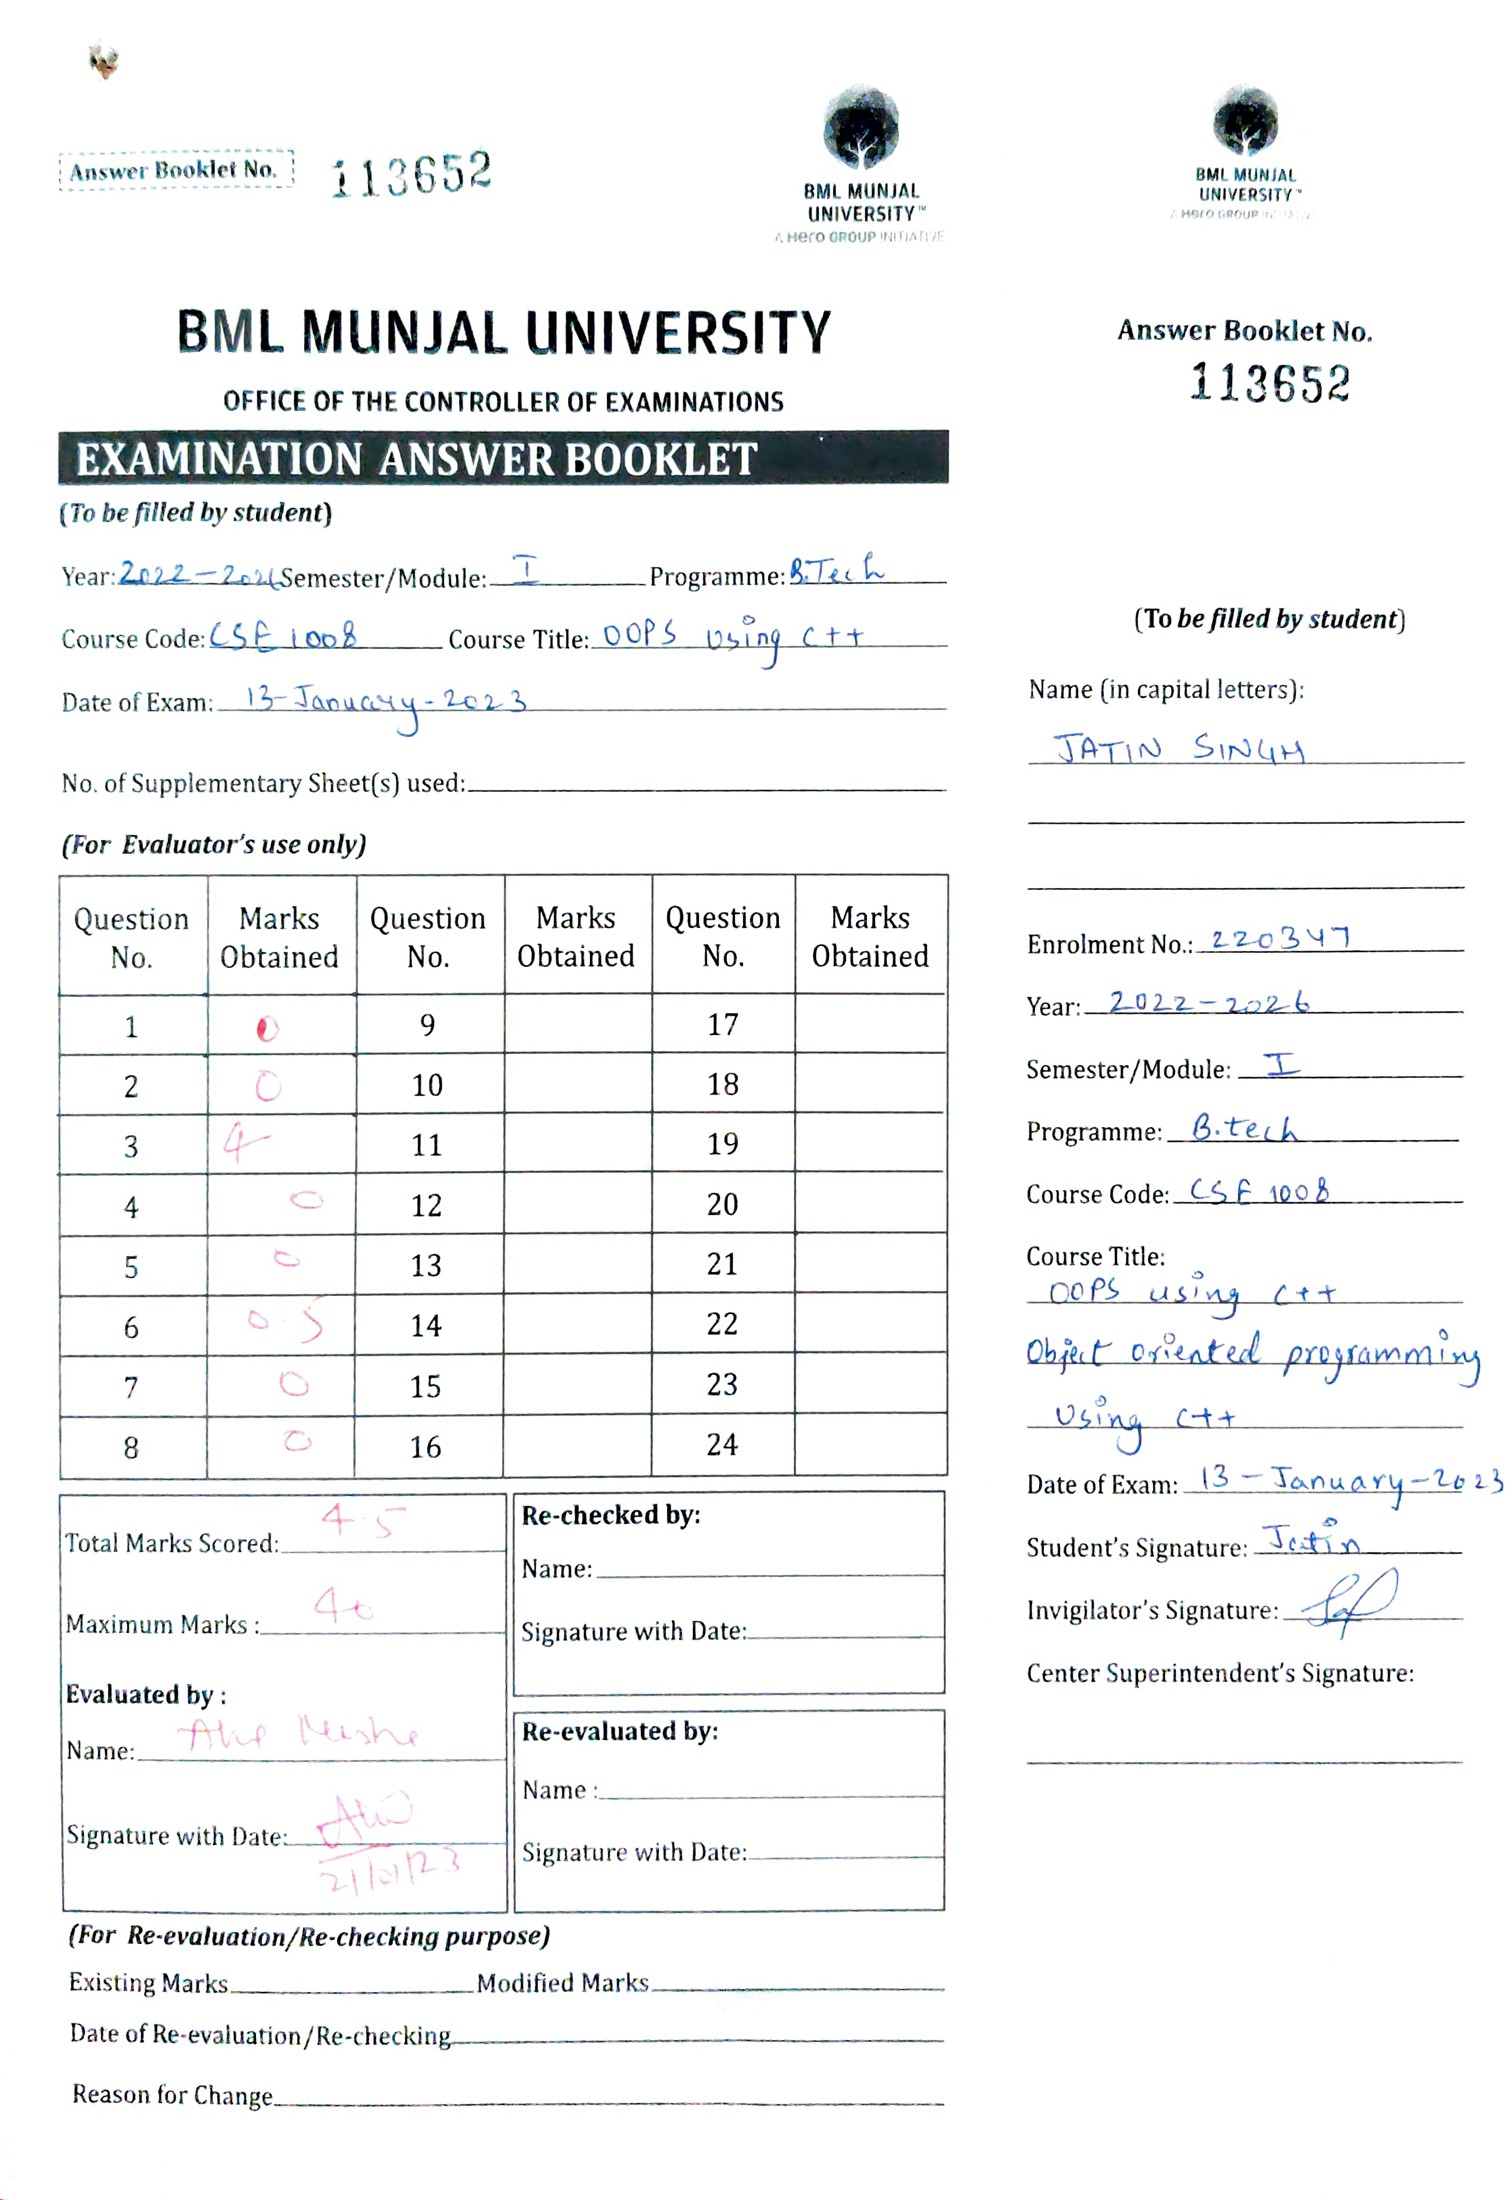 Answer Booklet No. 113652
BML MUNJAL
UNIVERSITY™
A Hero GROUP INITIATIVE
BML MUNJAL UNIVERSITY
OFFICE OF THE CONTROLLER OF EXAMINATIONS
EXAMINATION ANSWER BOOKLET
(To be filled by student)
Year: 2022-2026 Semester/Module: I Programme: B.Tech
Course Code: CSE 1008 Course Title: OOPS using C++
Date of Exam: 13-January-2023
No. of Supplementary Sheet(s) used:
(For Evaluator's use only)
Question No. Marks Obtained Question No. Marks Obtained Question No. Marks Obtained
1 0 9 17
2 0 10 18
3 4 11 19
4 0 12 20
5 0 13 21
6 0.5 14 22
7 0 15 23
8 0 16 24
Total Marks Scored: 4.5
Maximum Marks : 40
Evaluated by :
Name:
Signature with Date: 21/01/23
Re-checked by:
Name:
Signature with Date:
Re-evaluated by:
Name :
Signature with Date:
(For Re-evaluation/Re-checking purpose)
Existing Marks Modified Marks
Date of Re-evaluation/Re-checking
Reason for Change
BML MUNJAL
UNIVERSITY™
A Hero GROUP INITIATIVE
Answer Booklet No.
113652
(To be filled by student)
Name (in capital letters):
JATIN SINGH
Enrolment No.: 220347
Year: 2022-2026
Semester/Module: I
Programme: B.tech
Course Code: CSE 1008
Course Title:
OOPS using C++
Object oriented programming
Using C++
Date of Exam: 13-January-2023
Student's Signature: Jatin
Invigilator's Signature:
Center Superintendent's Signature: